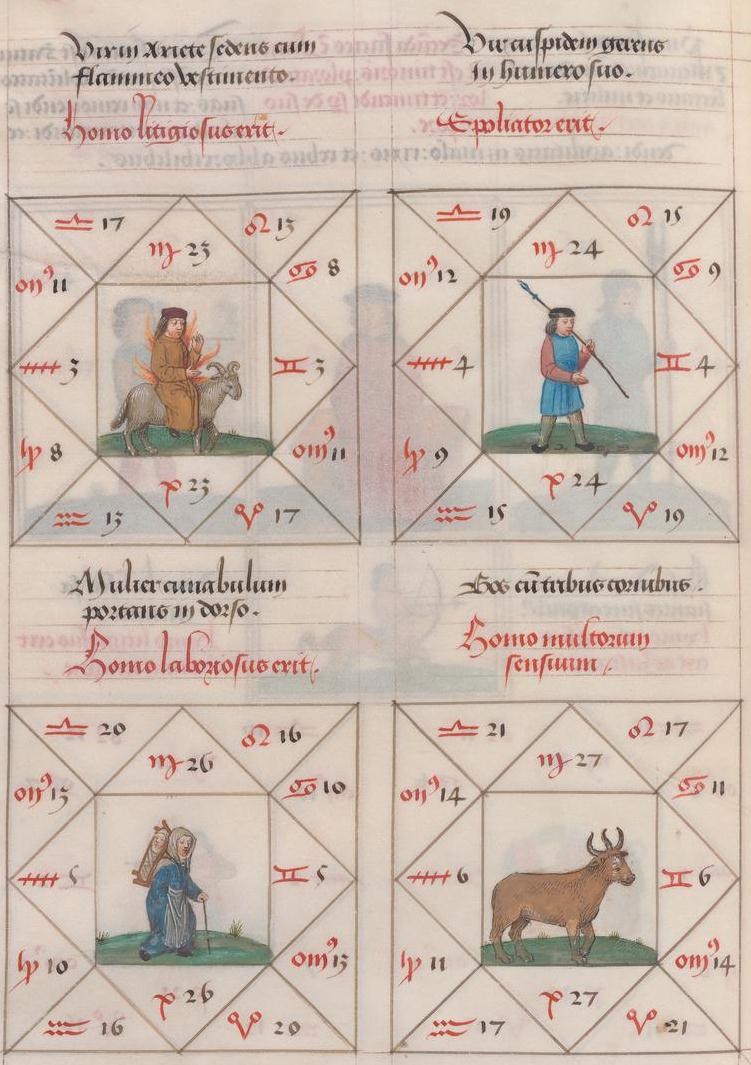 Vir in Ariete sedens cum
flammeo vestimento.
Homo litigiosus erit.
Vir cuspidem gerens
In humero suo.
Spoliator erit.
♎ 17
♍ 23
♌ 13
♋ 8
♊ 3
♉ 11
♈ 17
♓ 23
♒ 13
♑ 8
♐ 3
♏ 11
♎ 19
♍ 24
♌ 15
♋ 9
♊ 4
♉ 12
♈ 19
♓ 24
♒ 15
♑ 9
♐ 4
♏ 12
Mulier cunabulum
portans in dorso.
Homo laboriosus erit.
Bos cũ tribus cornibus.
Homo multorum
sensuum
♎ 20
♍ 26
♌ 16
♋ 10
♊ 5
♉ 13
♈ 20
♓ 26
♒ 16
♑ 10
♐ 5
♏ 13
♎ 21
♍ 27
♌ 17
♋ 11
♊ 6
♉ 14
♈ 21
♓ 27
♒ 17
♑ 11
♐ 6
♏ 14